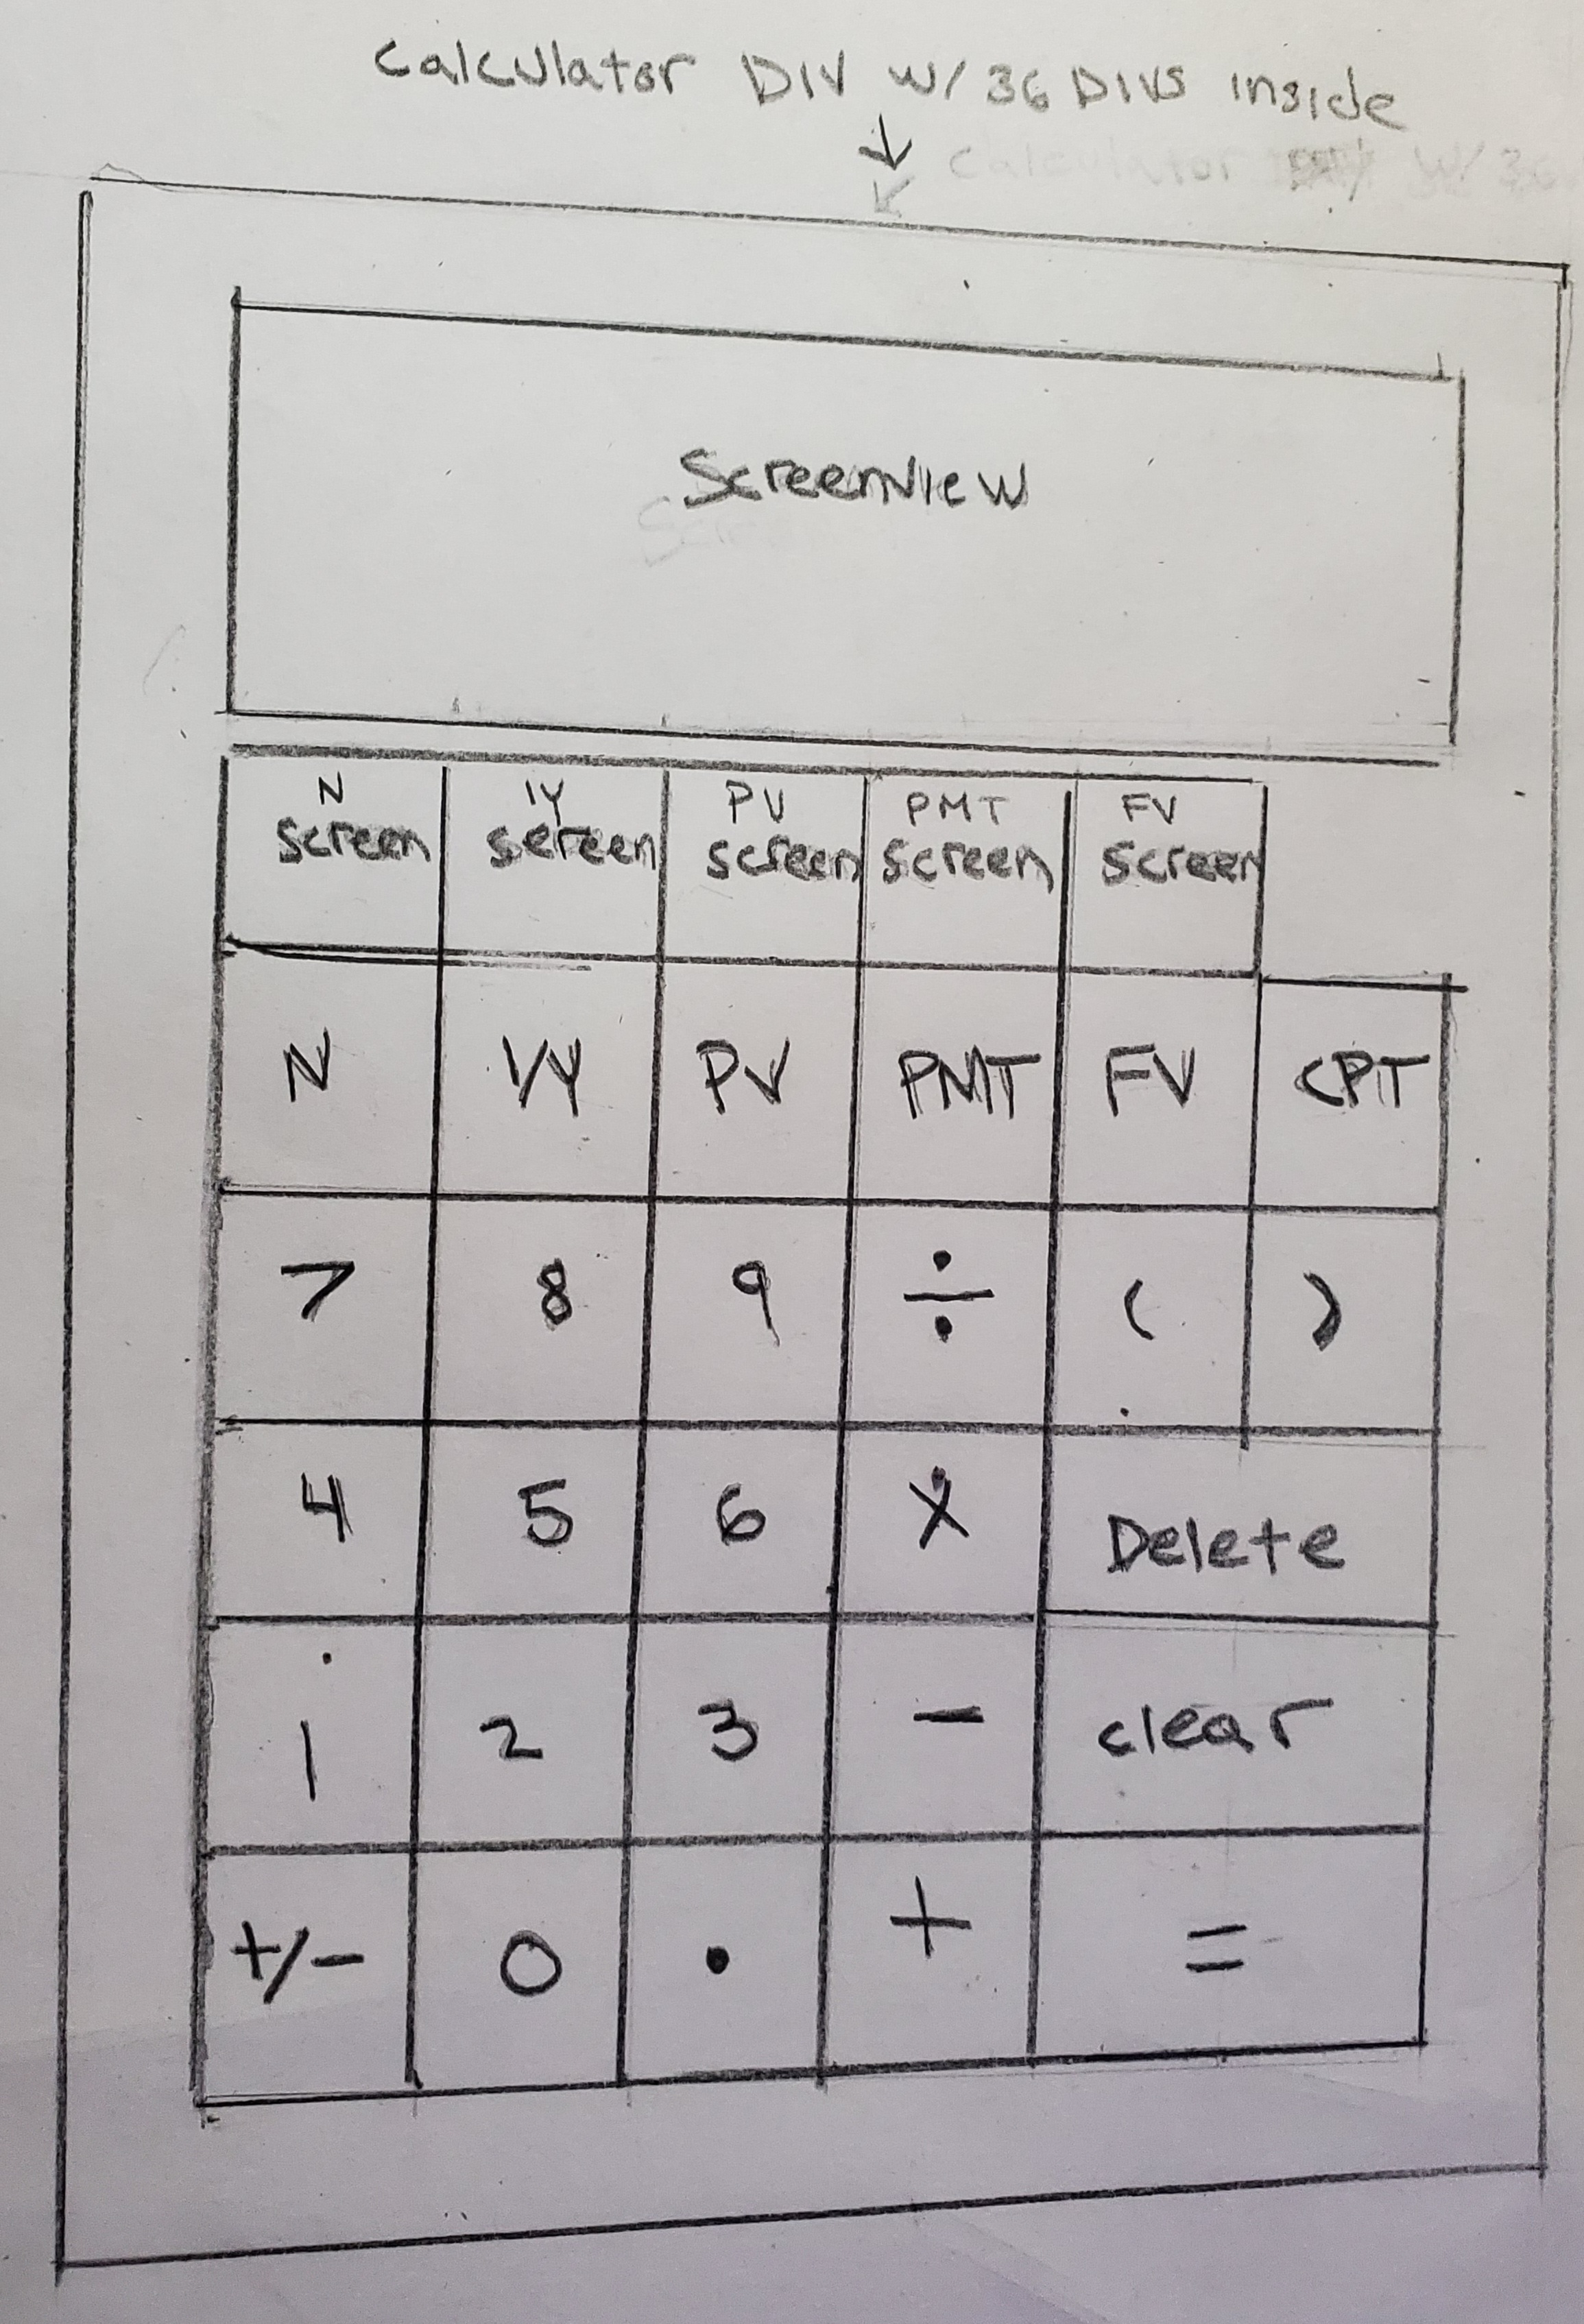 Calculator DIV w/ 36 DIVS inside
↓
Calculator w/ 36
Screenview
N screen IY screen PV screen PMT screen FV screen
N I/Y PV PMT FV CPT
7 8 9 ÷ ( )
4 5 6 X Delete
1 2 3 - clear
+/- 0 . + =